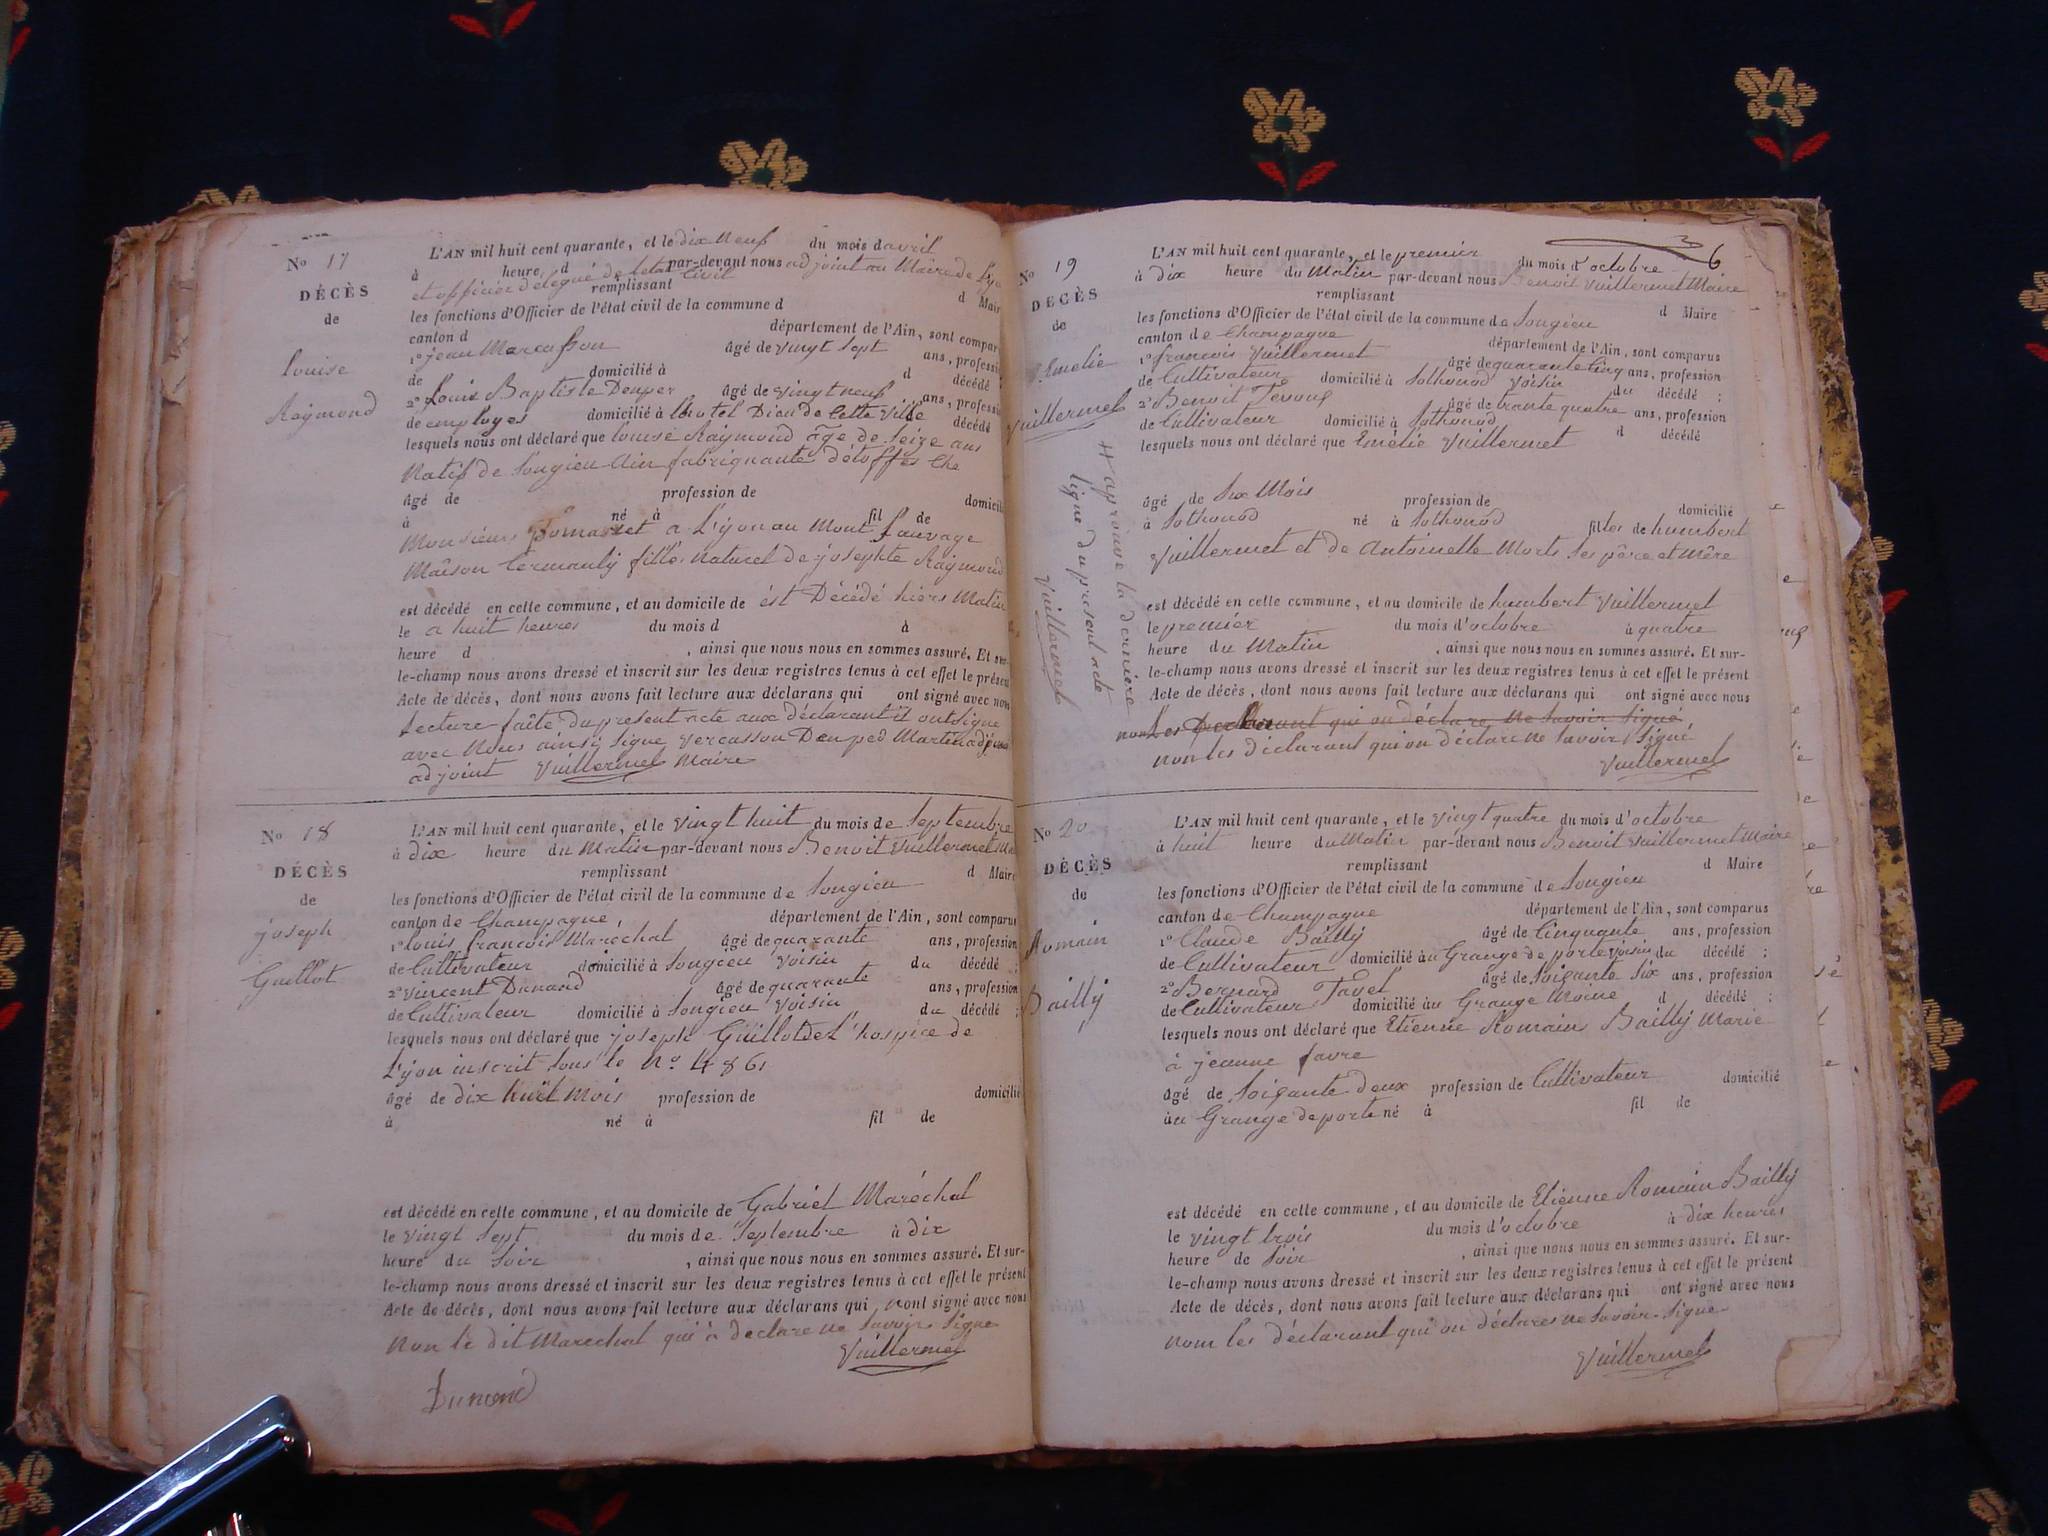 No 17
DÉCÈS
de
louise
Raymond
L'AN mil huit cent quarante, et le dix neuf du mois d avril
à heure d par-devant nous adjoint au Maire de Lyo
et officier delegué de letat Civil remplissant d Mair
les fonctions d'Officier de l'état civil de la commune d
canton d département de l'Ain, sont compar
1º jean Marcasson âgé de vingt sept ans, professi
de domicilié à d décédé
2º Louis Baptiste Denper âgé de vingt neuf ans, professi
de employes domicilié à lhotel Dieu de Cette ville décédé
lesquels nous ont déclaré que louise Raymond âge de Seize ans
Natif de Songieu Ain fabriquante détoffes Che
âgé de profession de domicili
à né à fil de
Monsieur a Lÿon au Mont Sauvage
Maison fille Naturel de josephte Raymond
est décédé en cette commune, et au domicile de ést Décédé hiers Matin
le a huit heures du mois d à
heure d , ainsi que nous nous en sommes assuré. Et sur-
le-champ nous avons dressé et inscrit sur les deux registres tenus à cet effet le présent
Acte de décès, dont nous avons fait lecture aux déclarans qui ont signé avec nous
Lecture faîte du present acte aux déclarant il ont signé
avec Nous ainsi Signe Vercasson Denped Martin
adjoint Vuillermet Maire
No 18
DÉCÈS
de
joseph
Guillot
L'AN mil huit cent quarante, et le vingt huit du mois de Septembre
à dix heure du Matin par-devant nous Benoit Vuillermet Ma
remplissant d Maire
les fonctions d'Officier de l'état civil de la commune de Songieu
canton de Champagne, département de l'Ain, sont comparus
1º louis françois Maréchal âgé de quarante ans, profession
de Cultivateur domicilié à Songieu voisin du décédé ;
2º vincent Dunand âgé de quarante ans, profession
de Cultivateur domicilié à Songieu Voisin, du décédé ;
lesquels nous ont déclaré que joseph Guillot de L'hospice de
Lÿon inscrit Sous le No 4861
âgé de dix huit Mois profession de domicilié
à né à fil de
est décédé en cette commune, et au domicile de Gabriel Maréchal
le vingt Sept du mois de Septembre à dix
heure du Soir , ainsi que nous nous en sommes assuré. Et sur-
le-champ nous avons dressé et inscrit sur les deux registres tenus à cet effet le présent
Acte de décès, dont nous avons fait lecture aux déclarans qui nont signé avec nous
Non le dit Marechal qui à declare ne Savoir Signe
Vuillermet
Dunand
6
No 19
DÉCÈS
de
Emelie
Vuillermet
L'AN mil huit cent quarante, et le premier du mois d'octobre
à dix heure du Matin par-devant nous Benoit Vuillermet Maire
remplissant d Maire
les fonctions d'Officier de l'état civil de la commune de Songieu
canton de Champagne département de l'Ain, sont comparus
1º françois Vuillermet âgé de quarante Cinq ans, profession
de Cultivateur domicilié à Sothonod voisin du décédé ;
2º Benoit âgé de trante quatre ans, profession
de Cultivateur domicilié à Sothonod d décédé
lesquels nous ont déclaré que Emélie Vuillermet
âgé de Six Mois profession de domicilié
à Sothonod né à Sothonod filles de humbert
Vuillermet et de Antoinette Morts Ses père et Mère
est décédé en cette commune, et au domicile de humbert Vuillermet
le premiér du mois d'octobre à quatre
heure du Matin , ainsi que nous nous en sommes assuré. Et sur-
le-champ nous avons dressé et inscrit sur les deux registres tenus à cet effet le présent
Acte de décès, dont nous avons fait lecture aux déclarans qui ont signé avec nous
non Les Déclarant qui on déclare Ne Savoir Signé,
non les déclarant qui on déclare ne Savoir Signé
Vuillermet
aprouve la derniere
ligne du present acte
Vuillermet
No 20
DÉCÈS
de
Romain
Bailly
L'AN mil huit cent quarante, et le vingt quatre du mois d'octobre
à huit heure du Matin par-devant nous Benoit Vuillermet Maire
remplissant d Maire
les fonctions d'Officier de l'état civil de la commune de Songieu
canton de Champagne département de l'Ain, sont comparus
1º Claude Bailly âgé de Cinquante ans, profession
de Cultivateur domicilié àu Grange de porte voisin du décédé ;
2º Bernard Tavel âgé de Soixante Six ans, profession
de Cultivateur domicilié àu Grange Moine d décédé ;
lesquels nous ont déclaré que Etienne Romain Bailly Marie
à jeanne favre
âgé de Soixante deux profession de Cultivateur domicilié
àu Grange de porte né à fil de
est décédé en cette commune, et au domicile de Etienne Romain Bailly
le vingt trois du mois d'octobre à dix heures
heure de Soir , ainsi que nous nous en sommes assuré. Et sur-
le-champ nous avons dressé et inscrit sur les deux registres tenus à cet effet le présent
Acte de décès, dont nous avons fait lecture aux déclarans qui ont signé avec nous
nom les déclarant qui on déclares ne Savoir Signe
Vuillermet